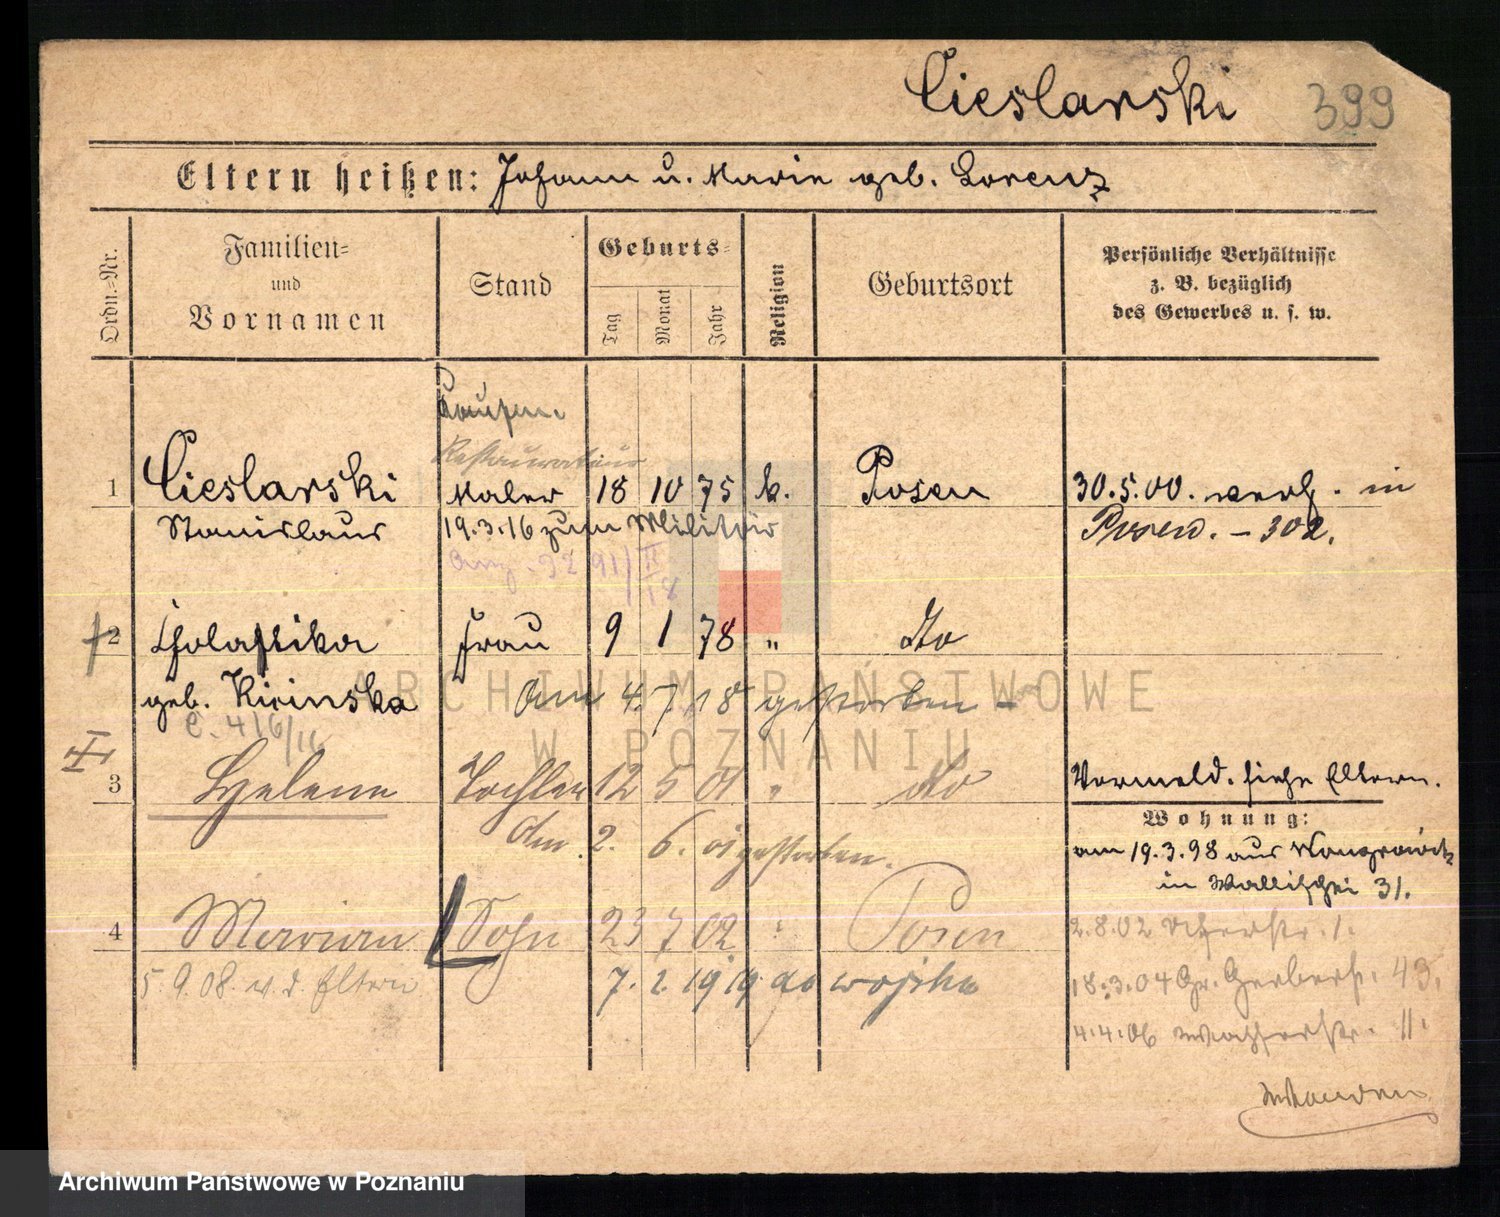 Cieslarski 399
Eltern heißen: Johann u. Marie geb. Lorenz
Ordn.-Nr.
Familien-
und
Vornamen
Stand
Geburts-
Tag
Monat
Jahr
Religion
Geburtsort
Persönliche Verhältnisse
z. B. bezüglich
des Gewerbes u. s. w.
Restaurateur
1 Cieslarski Maler 18 10 75 k. Posen 30.5.00. verh. in
Stanislaus 19.3.16 zum Militär Posen. - 302.
2 Scholastika Frau 9 1 78 " do
geb. Kicinska am 4. 7. 18 gestorben -
3 Helene Tochter 12 5 01 " do Vormeld. siehe Eltern.
Wohnung:
Am 2. 6. 01 gestorben.
am 19.3.98 aus Wongrowitz
in Wallischei 31.
4 Maryan Sohn 23 7 02 " Posen 2.8.02
5.9.08. v. d. Eltern 7. 2. 1919 do wojska 18.3.04 Gr. Gerberst. 43.
4.4.06 Wasserstr. 11.
ARCHIWUM PAŃSTWOWE
W POZNANIU
Archiwum Państwowe w Poznaniu